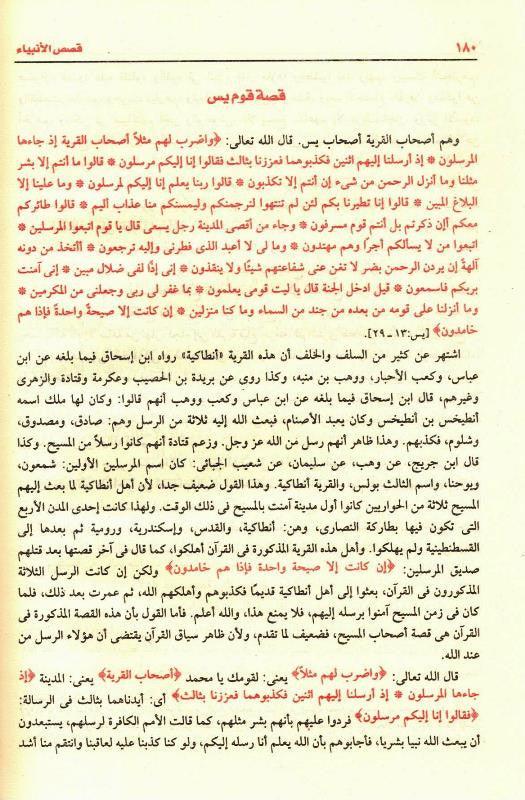 ١٨٠
قصص الأنبياء
قصة قوم يس
وهم أصحاب القرية أصحاب يس. قال الله تعالى: ﴿واضرب لهم مثلاً أصحاب القرية إذ جاءها
المرسلون * إذ أرسلنا إليهم اثنين فكذبوهما فعززنا بثالث فقالوا إنا إليكم مرسلون * قالوا ما أنتم إلا بشر
مثلنا وما أنزل الرحمن من شىء إن أنتم إلا تكذبون * قالوا ربنا يعلم إنا إليكم لمرسلون * وما علينا إلا
البلاغ المبين * قالوا إنا تطيرنا بكم لئن لم تنتهوا لنرجمنكم وليمسنكم منا عذاب أليم * قالوا طائركم
معكم أإن ذكرتم بل أنتم قوم مسرفون * وجاء من أقصى المدينة رجل يسعى قال يا قوم اتبعوا المرسلين *
اتبعوا من لا يسألكم أجرًا وهم مهتدون * وما لى لا أعبد الذى فطرنى وإليه ترجعون * أأتخذ من دونه
آلهةً إن يردن الرحمن بضر لا تغن عنى شفاعتهم شيئًا ولا ينقذون * إنى إذًا لفى ضلال مبين * إنى آمنت
بربكم فاسمعون * قيل ادخل الجنة قال يا ليت قومى يعلمون * بما غفر لى ربى وجعلنى من المكرمين *
وما أنزلنا على قومه من بعده من جند من السماء وما كنا منزلين * إن كانت إلا صيحةً واحدةً فإذا هم
خامدون﴾ [يس:١٣ـ٢٩].
اشتهر عن كثير من السلف والخلف أن هذه القرية «أنطاكية» رواه ابن إسحاق فيما بلغه عن ابن
عباس، وكعب الأحبار، ووهب بن منبه، وكذا روي عن بريدة بن الحصيب وعكرمة وقتادة والزهرى
وغيرهم، قال ابن إسحاق فيما بلغه عن ابن عباس وكعب ووهب أنهم قالوا: وكان لها ملك اسمه
أنطيخس بن أنطيخس وكان يعبد الأصنام، فبعث الله إليه ثلاثة من الرسل وهم: صادق، ومصدوق،
وشلوم، فكذبهم. وهذا ظاهر أنهم رسل من الله عز وجل. وزعم قتادة أنهم كانوا رسلاً من المسيح. وكذا
قال ابن جريج، عن وهب، عن سليمان، عن شعيب الجبائى: كان اسم المرسلين الأولين: شمعون،
ويوحنا، واسم الثالث بولس، والقرية أنطاكية. وهذا القول ضعيف جدا، لأن أهل أنطاكية لما بعث إليهم
المسيح ثلاثة من الحواريين كانوا أول مدينة آمنت بالمسيح فى ذلك الوقت. ولهذا كانت إحدى المدن الأربع
التى تكون فيها بطاركة النصارى، وهن: أنطاكية، والقدس، وإسكندرية، ورومية ثم بعدها إلى
القسطنطينية ولم يهلكوا. وأهل هذه القرية المذكورة فى القرآن أهلكوا، كما قال فى آخر قصتها بعد قتلهم
صديق المرسلين: ﴿إن كانت إلا صيحة واحدة فإذا هم خامدون﴾ ولكن إن كانت الرسل الثلاثة
المذكورون فى القرآن، بعثوا إلى أهل أنطاكية قديمًا فكذبوهم وأهلكهم الله، ثم عمرت بعد ذلك، فلما
كان فى زمن المسيح آمنوا برسله إليهم، فلا يمنع هذا، والله أعلم. فأما القول بأن هذه القصة المذكورة فى
القرآن هى قصة أصحاب المسيح، فضعيف لما تقدم، ولأن ظاهر سياق القرآن يقتضى أن هؤلاء الرسل من
عند الله.
قال الله تعالى: ﴿واضرب لهم مثلاً﴾ يعنى: لقومك يا محمد ﴿أصحاب القرية﴾ يعنى: المدينة ﴿إذ
جاءها المرسلون * إذ أرسلنا إليهم اثنين فكذبوهما فعززنا بثالث﴾ أى: أيدناهما بثالث فى الرسالة:
﴿فقالوا إنا إليكم مرسلون﴾ فردوا عليهم بأنهم بشر مثلهم، كما قالت الأمم الكافرة لرسلهم، يستبعدون
أن يبعث الله نبيا بشريا، فأجابوهم بأن الله يعلم أنا رسله إليكم، ولو كنا كذبنا عليه لعاقبنا وانتقم منا أشد